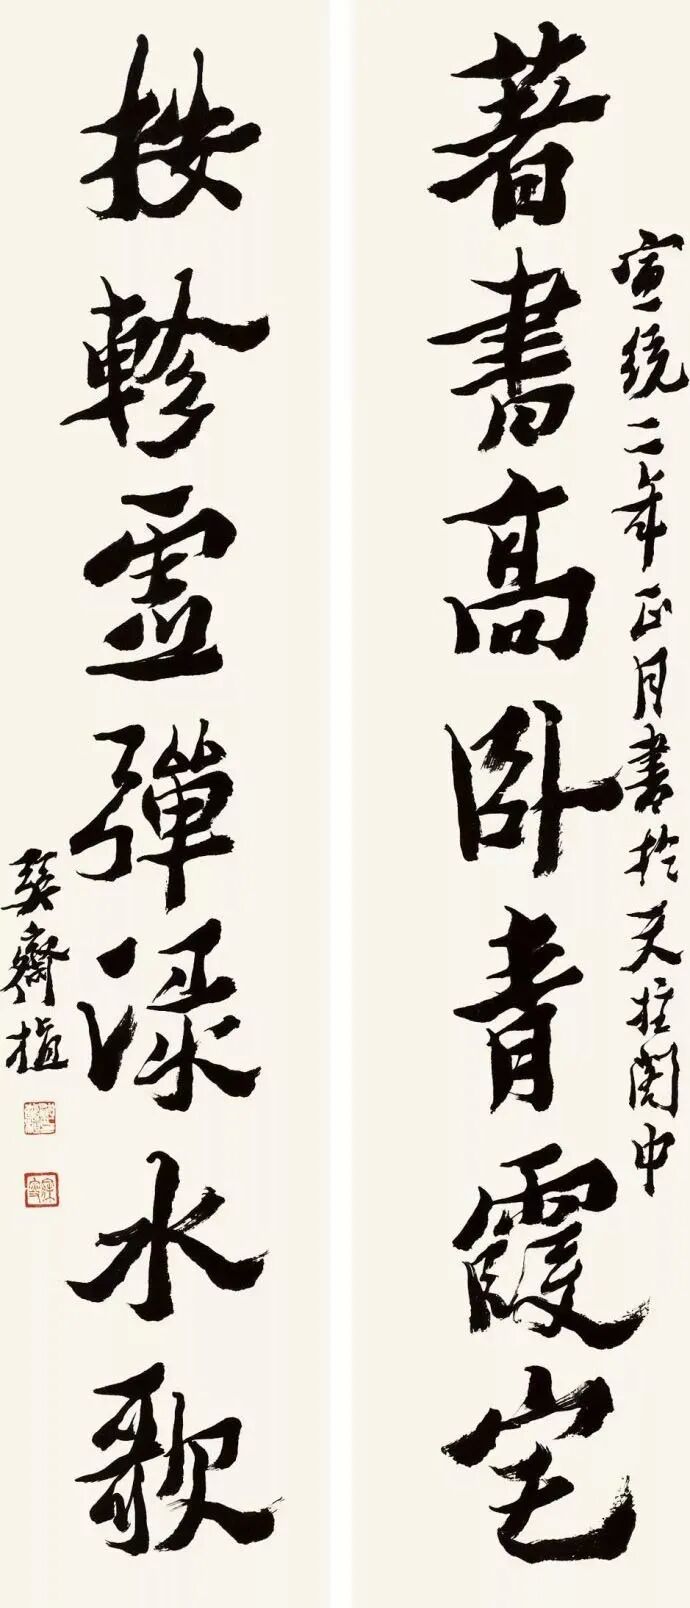 著書高卧青霞宅
宣統二年正月書於天柱閣中
按軫霊彈淥水歌
巽齋植